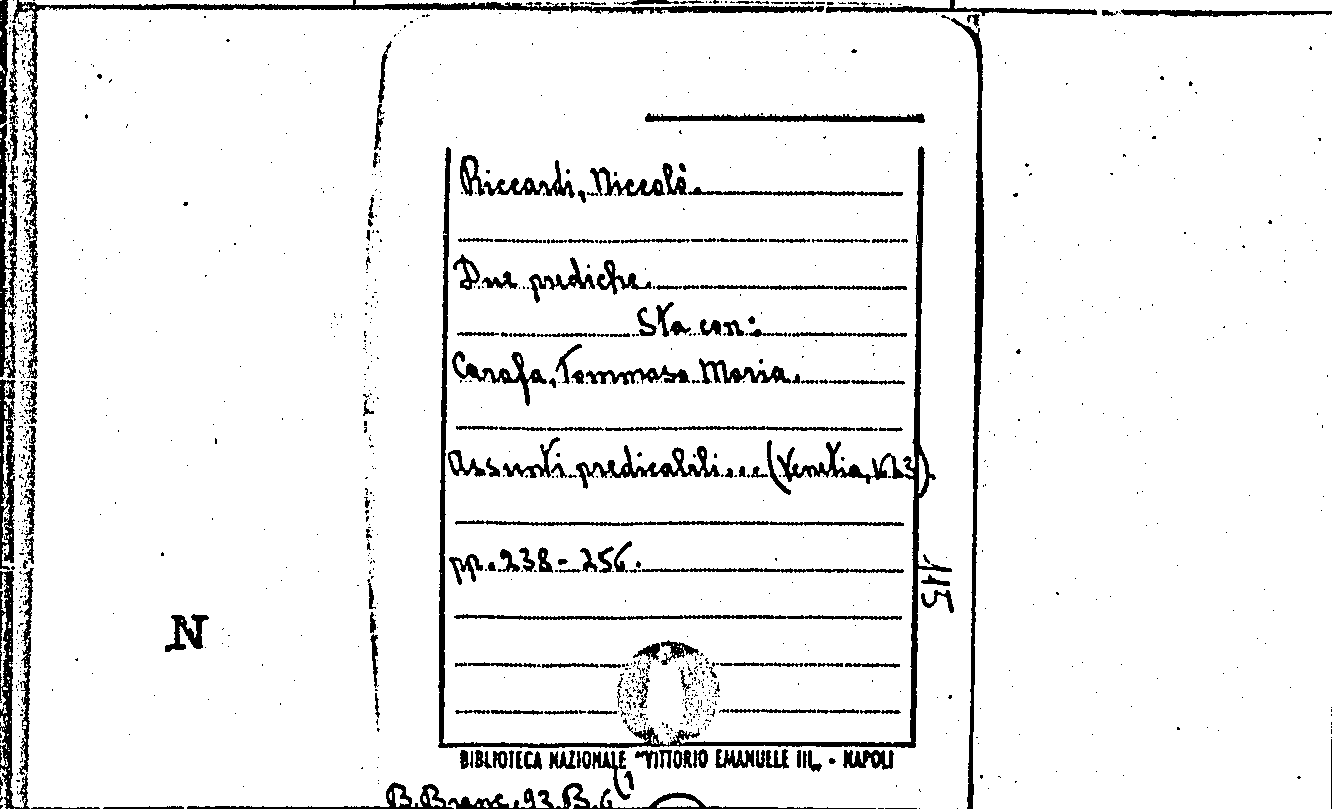 Riccardi, Niccolò.
Due prediche.
Sta con:
Carafa, Tommaso Maria.
Assunti predicabili... (Venetia,
pp. 238-256.
115
N
BIBLIOTECA NAZIONALE "VITTORIO EMANUELE III„ - NAPOLI
B. Branc. 93. B. 6 (1